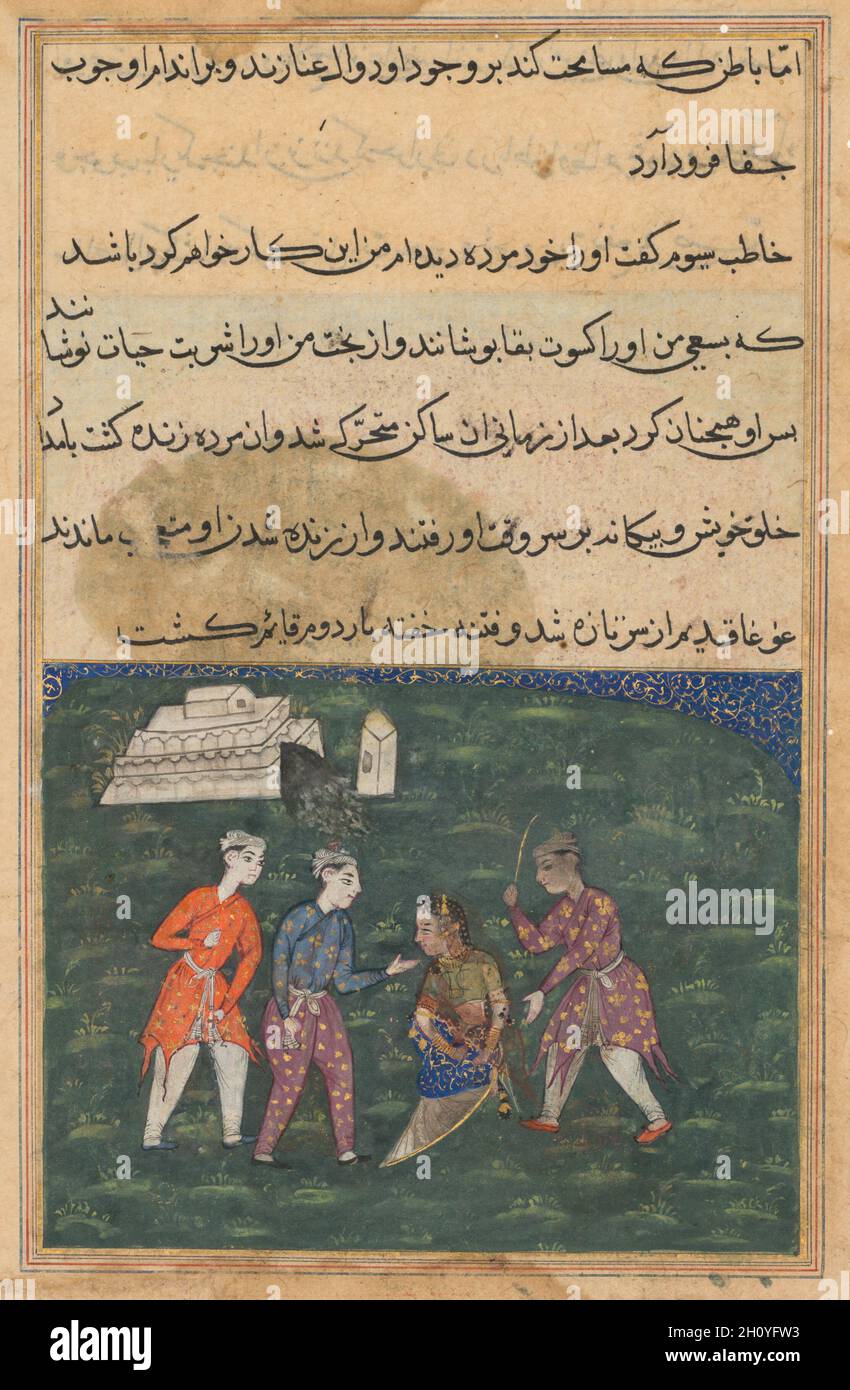 امّا باطن که مسامحت کند بر وجود او دوال عنا زند و بر اندام او چوب
جفا فرود آرد
خاطب سیوم گفت او را خود مرده دیده ام من این کار خواهم کرد باشد
که بسعی من او را کسوت بقا بوشانند و از بخت من او را شربت حیات نوشانند
بس او همچنان کرد بعد از زمانی ان ساکن متحرّک شد و ان مرده زنده کشت بامداد
خلق خویش و بیکانه بر سر وقت او رفتند و از زنده شدن او متعجب ماندند
غوغا قدیم از سر تازه شد و فتنه خفته بار دوم قایم کشت
alamy
Image ID: 2H0YFW3
www.alamy.com